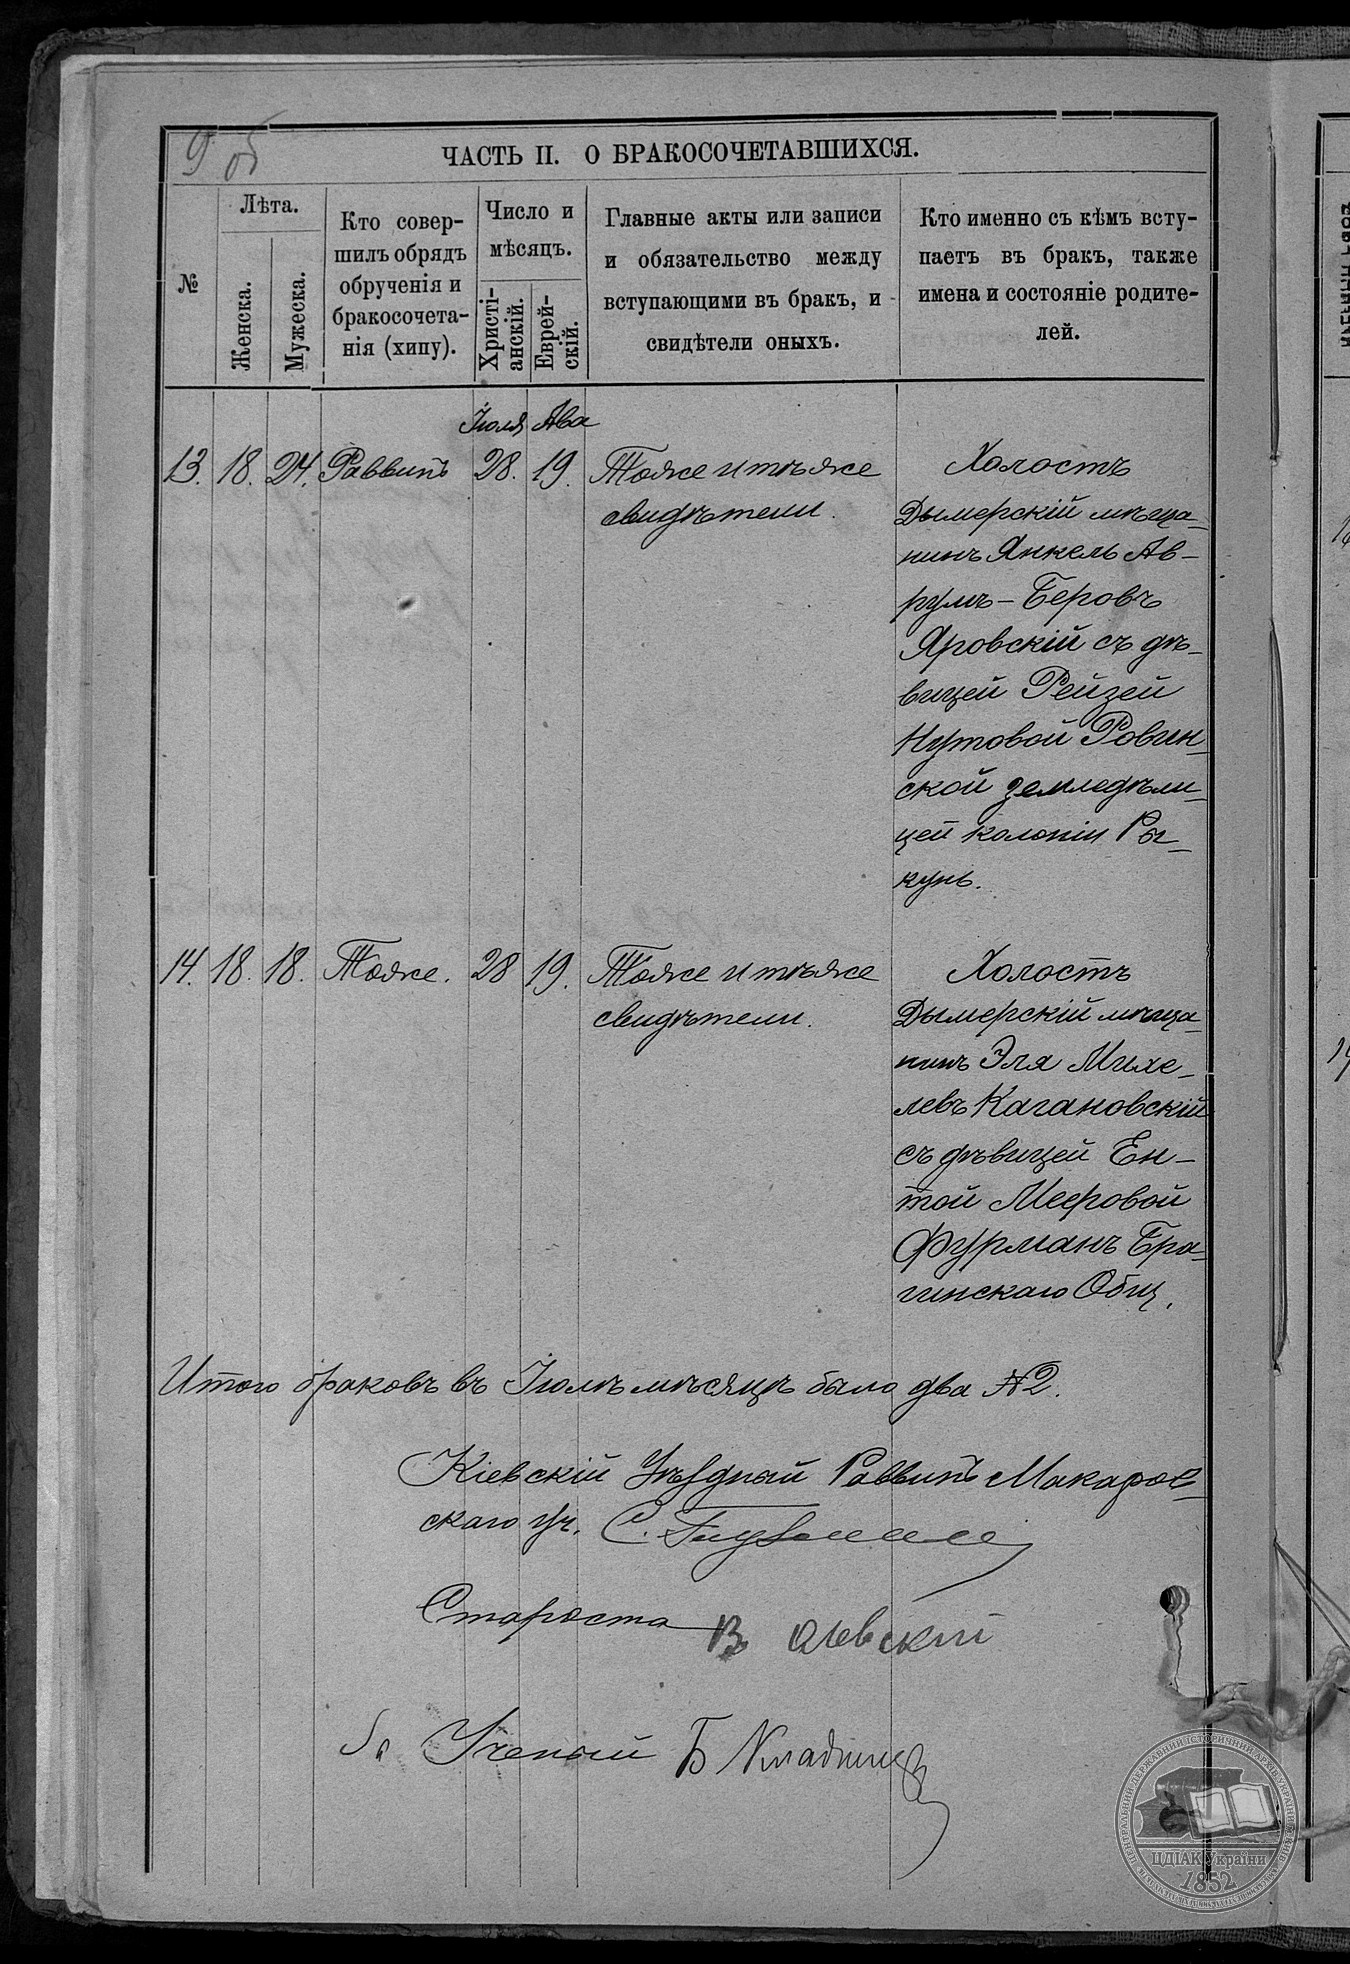 9 об
ЧАСТЬ II. О БРАКОСОЧЕТАВШИХСЯ.
№
Лѣта.
Женска.
Мужеска.
Кто совер-
шилъ обрядъ
обрученія и
бракосочета-
нія (хипу).
Число и
мѣсяцъ.
Христі-
анскій.
Еврей-
скій.
Главные акты или записи
и обязательство между
вступающими въ бракъ, и
свидѣтели оныхъ.
Кто именно съ кѣмъ всту-
паетъ въ бракъ, также
имена и состояніе родите-
лей.
Іюля Ава
13. 18. 24. Раввинъ 28. 19. Тоже и тѣже
свидѣтели.
Холостъ
Дымерскій мѣща-
нинъ Янкель Ав-
румъ-Беровъ
Яровскій съ дѣ-
вицей Рейзей
Нутовой Ровин-
ской земледѣли-
цей колоніи Ры-
кунь.
14. 18. 18. Тоже. 28 19. Тоже и тѣже
свидѣтели.
Холостъ
Дымерскій мѣща-
нинъ Эля Михе-
левъ Кагановскій
съ дѣвицей Ен-
той Мееровой
Фурманъ Бра-
гинскаго Общ.
Итого браковъ въ Іюлѣ мѣсяцѣ было два №2.
Кіевскій Уѣздный Раввинъ Макаров-
скаго уч. С.
Староста
Ученый Б
ЦЕНТРАЛЬНИЙ ДЕРЖАВНИЙ ІСТОРИЧНИЙ АРХІВ УКРАЇНИ
ЦДІАК України
1852